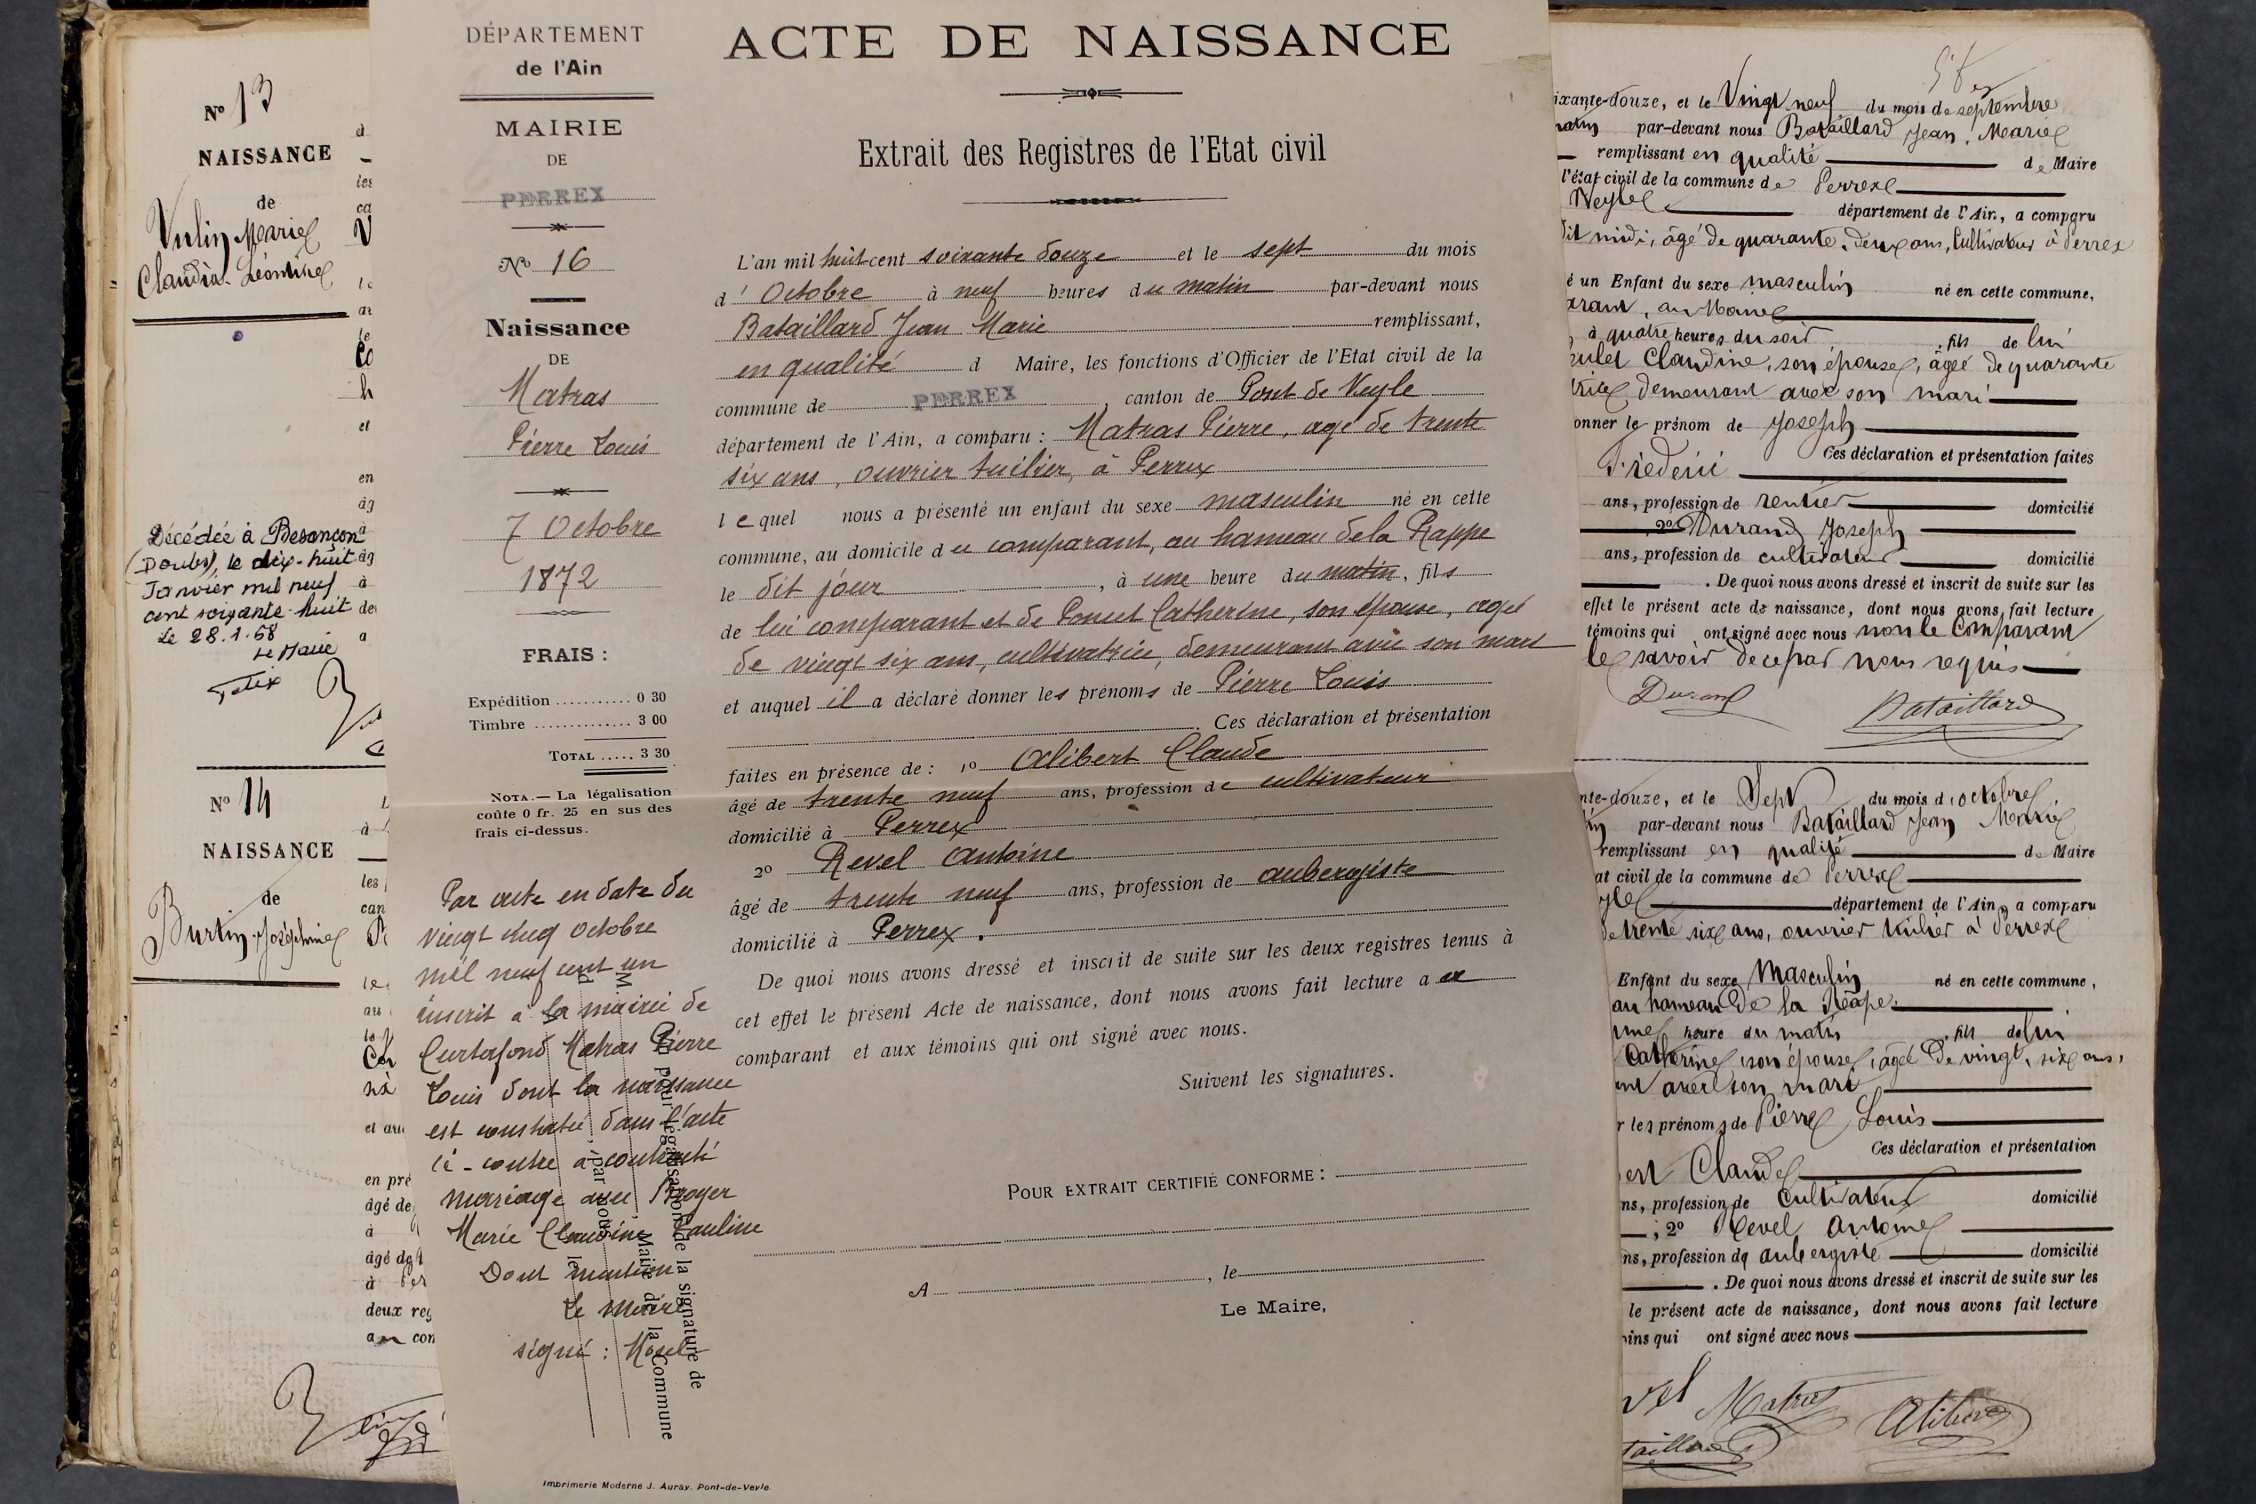 Nº 13
NAISSANCE
de
Vulin Marie
Claudia Léontine
Décédée à Besançon
(Doubs), le dix-huit
Janvier mil neuf
cent soixante-huit
Le 28.1.68
Le Maire
Nº 14
NAISSANCE
de
Burtin Joséphine
DÉPARTEMENT
de l'Ain
MAIRIE
DE
PERREX
Nº 16
Naissance
DE
Matras
Pierre Louis
7 Octobre
1872
FRAIS :
Expédition ........... 0 30
Timbre .............. 3 00
TOTAL ..... 3 30
NOTA. — La légalisation
coûte 0 fr. 25 en sus des
frais ci-dessus.
Par acte en date du
vingt cinq octobre
mil neuf cent un
inscrit à la mairie de
Curtafond Matras Pierre
Louis dont la naissance
est constatée dans l'acte
ci-contre a contracté
mariage avec Broyer
Marie Claudine Pauline
Dont mention
Le maire
signé :
M.
par nous, Maire de la Commune
pour légalisation de la signature de
Imprimerie Moderne J. Auray. Pont-de-Veyle
ACTE DE NAISSANCE
Extrait des Registres de l'Etat civil
L'an mil huit cent soixante douze et le sept du mois
d' Octobre à neuf heures du matin par-devant nous
Bataillard Jean Marie remplissant,
en qualité d Maire, les fonctions d'Officier de l'Etat civil de la
commune de PERREX, canton de Pont de Veyle
département de l'Ain, a comparu : Matras Pierre, age de trente
six ans, ouvrier tuilier, à Perrex
lequel nous a présenté un enfant du sexe masculin né en cette
commune, au domicile du comparant, au hameau de la Rappe
le dit jour, à une heure du matin, fils
de lui comparant et de Poncet Catherine, son épouse, agée
de vingt six ans, cultivatrice, demeurant avec son mari
et auquel il a déclaré donner les prénoms de Pierre Louis
Ces déclaration et présentation
faites en présence de : 1º Alibert Claude
âgé de trente neuf ans, profession de cultivateur
domicilié à Perrex
2º Revel Antoine
âgé de trente neuf ans, profession de aubergiste
domicilié à Perrex.
De quoi nous avons dressé et inscrit de suite sur les deux registres tenus à
cet effet le présent Acte de naissance, dont nous avons fait lecture a ce
comparant et aux témoins qui ont signé avec nous.
Suivent les signatures.
POUR EXTRAIT CERTIFIÉ CONFORME :
A , le
Le Maire,
ixante-douze, et le Vingt neuf du mois de septembre
matin par-devant nous Bataillard Jean Marie
remplissant en qualité de Maire
l'état civil de la commune de Perrex
Veyle département de l'Ain, a comparu
dit midi, âgé de quarante-deux ans, Cultivateur à Perrex
é un Enfant du sexe masculin né en cette commune,
à quatre heures du soir, fils de lui
Claudine, son épouse, âgée de quarante
demeurant avec son mari
onner le prénom de Joseph
ces déclaration et présentation faites
ans, profession de rentier domicilié
2º Durand Joseph
ans, profession de cultivateur domicilié
. De quoi nous avons dressé et inscrit de suite sur les
effet le présent acte de naissance, dont nous avons fait lecture
témoins qui ont signé avec nous non le Comparant
le savoir de ce par nous requis
Durand Bataillard
nte-douze, et le Sept du mois d'octobre
par-devant nous Bataillard Jean Marie
remplissant en qualité de Maire
at civil de la commune de Perrex
département de l'Ain, a comparu
de trente six ans, ouvrier tuilier à Perrex
Enfant du sexe Masculin né en cette commune,
au hameau de la Râpe
une heure du matin, fils de lui
Catherine, son épouse, âgée de vingt six ans,
avec son mari
r les prénoms de Pierre Louis
Ces déclaration et présentation
Claude
ns, profession de Cultivateur domicilié
; 2º Revel Antoine
ns, profession de aubergiste domicilié
. De quoi nous avons dressé et inscrit de suite sur les
le présent acte de naissance, dont nous avons fait lecture
oins qui ont signé avec nous
vel Matras Alibert
taillard